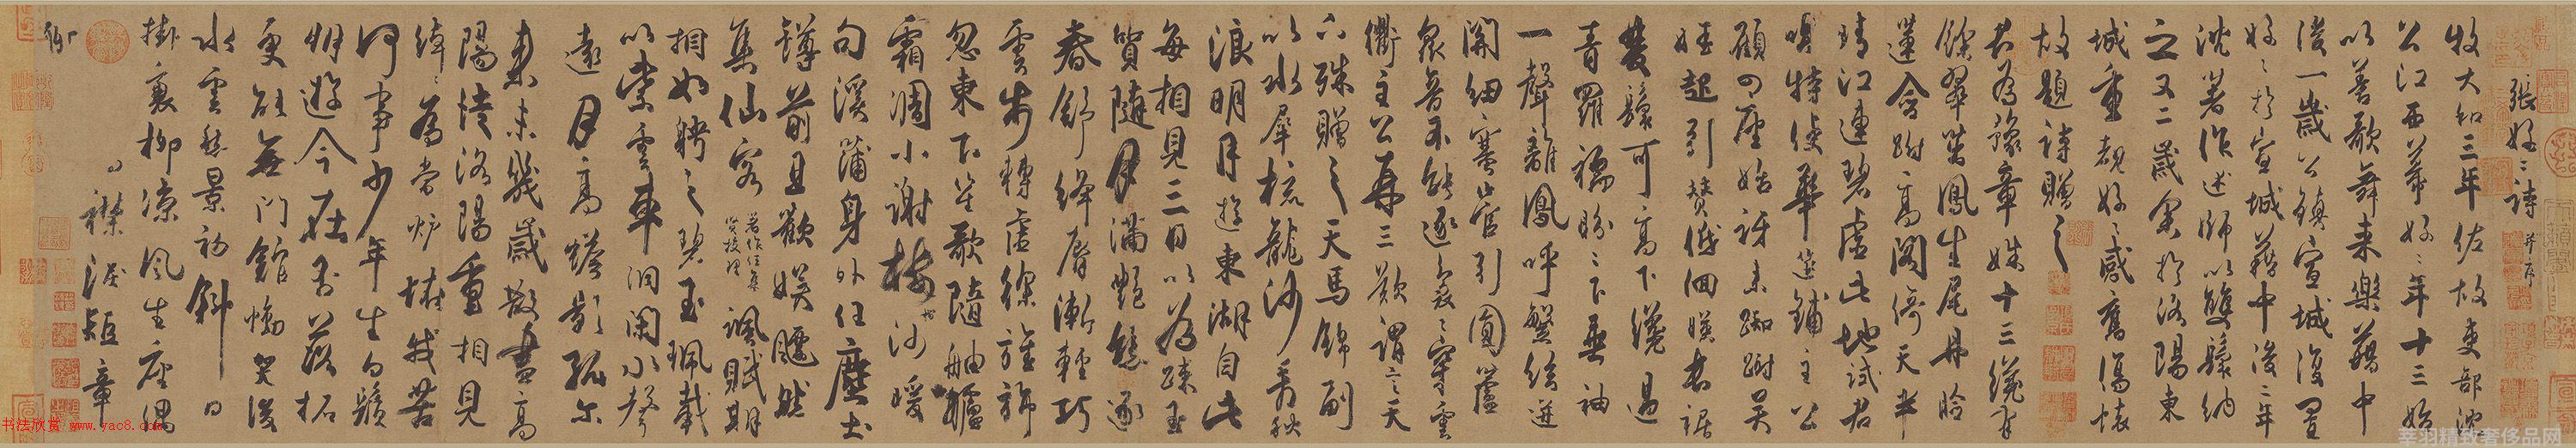 張好好詩并序
牧大和三年佐故吏部沈
公江西幕好〻年十三始
以善歌舞來樂藉中
後一歲公鎮宣城復置
好〻於宣城藉中後二年
沈著作述師以雙鬟納
之又二歲余於洛陽東
城重覩好〻感舊傷懷
故題詩贈之
君為豫章姝十三纔有
餘翠茁鳳生尾丹臉
蓮含跗高閣倚天半
晴江連碧虛此地試君
唱特使華筵鋪主公
顧四座始訝來踟躕吳
娃起引贊低佪暎長裾
雙鬟可高下纔過
青羅襦盼〻下垂袖
一聲離鳳呼繁絃迸
關紐塞管引圓蘆
衆音不能逐裊〻穿雲
衢主公再三歎謂言天
下殊贈之天馬錦副
以水犀梳龍沙看秋
浪明月遊東湖自此
每相見三日以為踈玉
質隨月滿艷態逐
春舒絳脣漸輕巧
雲步轉虛徐旌旆
忽東下笙歌隨舳艫
霜凋小謝樹沙暖
句溪蒲身外任塵土
罇前且歡娛飄然
集仙客著作任集賢校理諷賦期
相如聘之碧玉珮載
以紫雲車洞閉水聲
遠月高蟾影孤爾
來未幾歲散盡高
陽徒洛陽重相見
綽〻為當爐怪我苦
何事少年生白鬚
朋遊今在否落拓
更能無門館慟哭後
水雲愁景初斜日
掛衰柳涼風生座隅
襟淚短章
聊
书法欣赏 www.yac8.com
莘羽精致奢侈品网